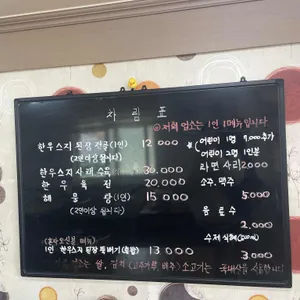 차림표
◎ 저희 업소는 1인 1메뉴입니다
한우스지 된장전골(1인) 12000
(2인이상 됩니다)
한우스지사채수육 30.000
한우육전 20.000
해물탕 (1인) 15000
(2인이상 됩니다)
(혼자오신분 메뉴)
1인 한우스지 된장뚝배기(중짜) 13000
어린이 1명 추가
어린이 2명 1인분
라면 사리 2,000
소주. 맥주
5.000
음료수
2.000
수제 식혜
3.000
쌀, 김치 (고추가루, 배추) 소고기는 국내산을 사용합니다